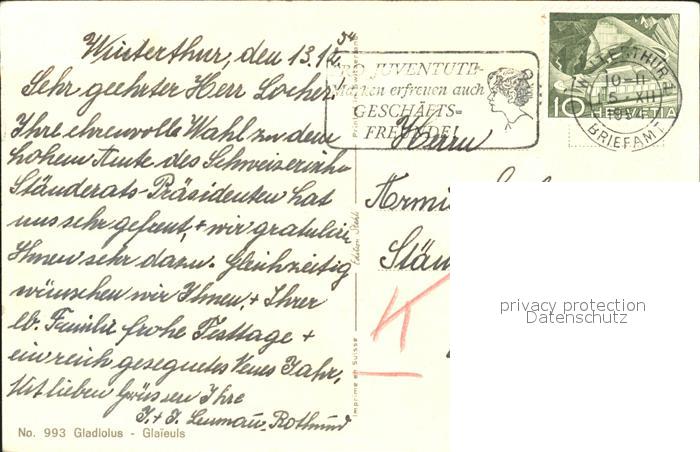 Winterthur, den 13.12.54
Sehr geehrter Herr Locher!
Ihre ehrenvolle Wahl zu dem
hohen Amte des Schweizerischen
Ständerats-Präsidenten hat
uns sehr gefreut, + wir gratulieren
Ihnen sehr dazu. Gleichzeitig
wünschen wir Ihnen, + Ihrer
lb. Familie frohe Festtage +
ein reich gesegnetes Neues Jahr.
Mit lieben Grüssen Ihre
J. + J. Rothmund
No. 993 Gladiolus - Glaïeuls
Edition Stehli
Imprimé en Suisse
PRO JUVENTUTE-
Marken erfreuen auch
GESCHÄFTS-
FREUNDE!
WINTERTHUR 1
19-11
15.XII
1954
BRIEFAMT
10 HELVETIA
Herrn
Armin
Stän
K
privacy protection
Datenschutz